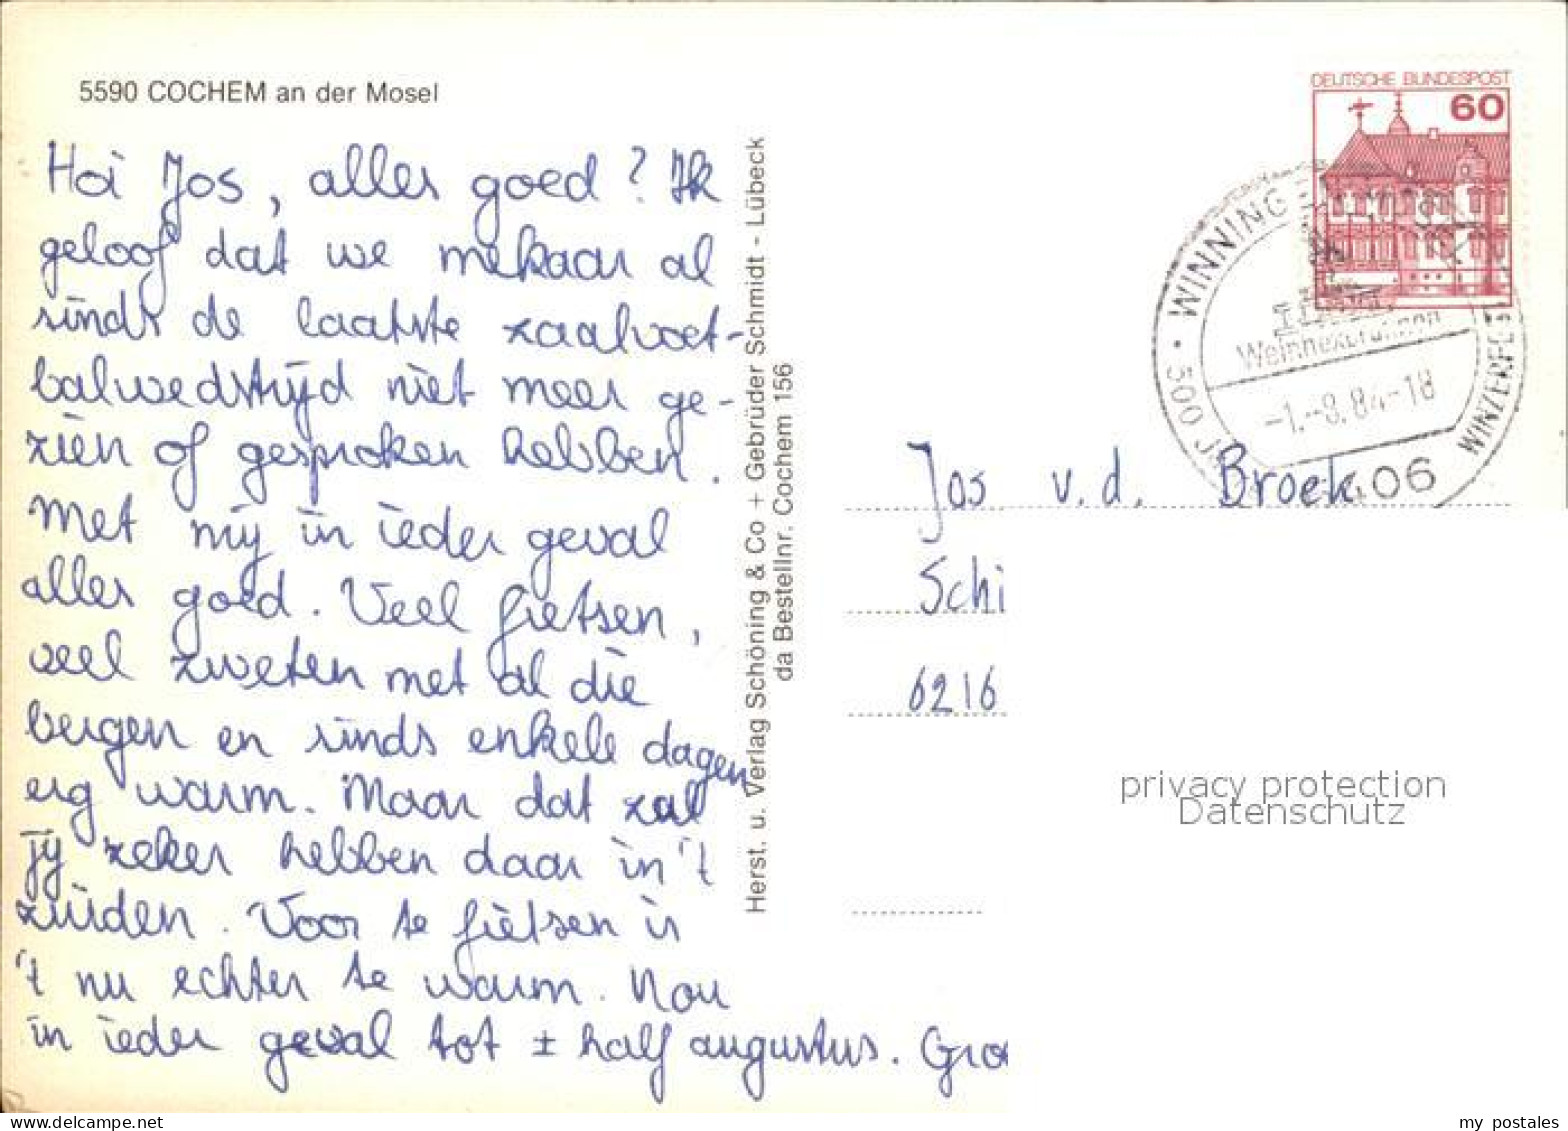 5590 COCHEM an der Mosel
Hoi Jos, alles goed? Ik
geloof dat we mekaar al
sinds de laatste zaalvoet-
balwedstrijd niet meer ge-
zien of gesproken hebben.
Met mij in ieder geval
alles goed. Veel fietsen,
veel zweten met al die
bergen en sinds enkele dagen
erg warm. Maar dat zal
jij zeker hebben daar in 't
zuiden. Voor te fietsen is
't nu echter te warm. Nou
in ieder geval tot ± half augustus. Groe
Herst. u. Verlag Schöning & Co + Gebrüder Schmidt - Lübeck
da Bestellnr. Cochem 156
DEUTSCHE BUNDESPOST
60
WINNING
500 J
WINZERFEST
Weinhexbrunnen
-1.-8.84-18
5406
Jos v.d. Broek
Schi
6216
privacy protection
Datenschutz
my postales